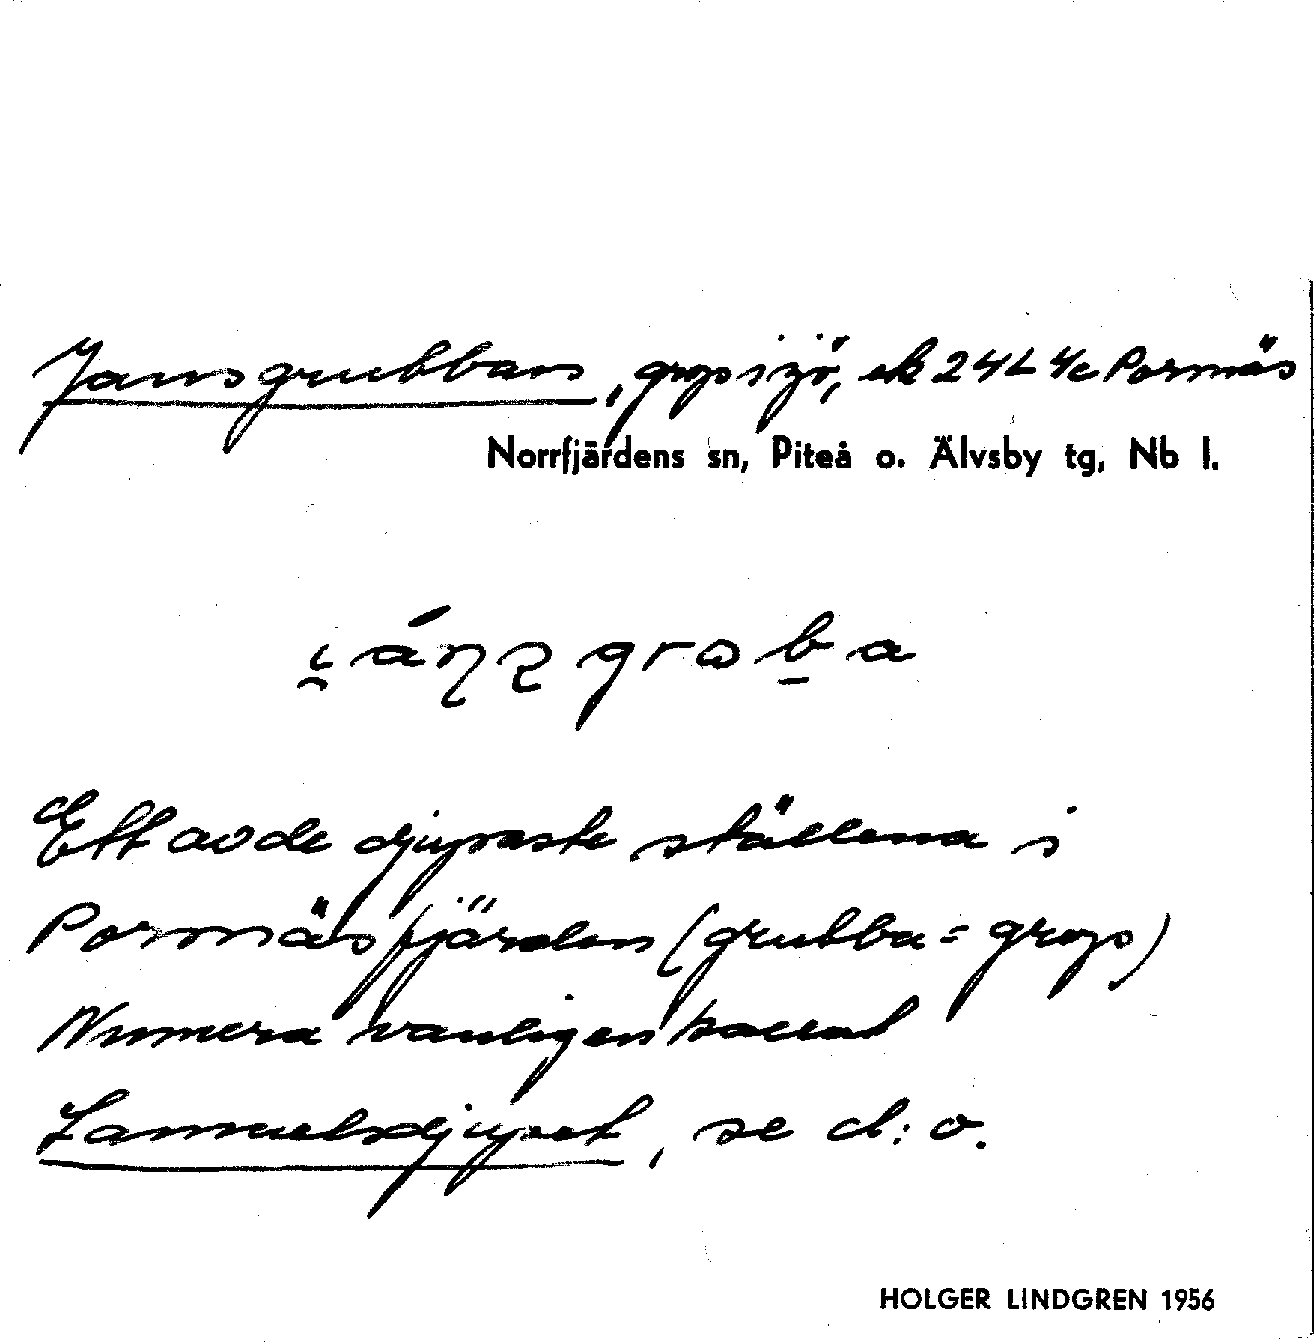 Jansgrubban, grop i sjö, ek 24L 4c Porsnäs
Norrfjärdens sn, Piteå o. Älvsby tg, Nb l.
Ett av de djupaste ställena i
Porsnäsfjärden (grubba = grop)
Numera vanligen kallad
djupet, se d:o.
HOLGER LINDGREN 1956